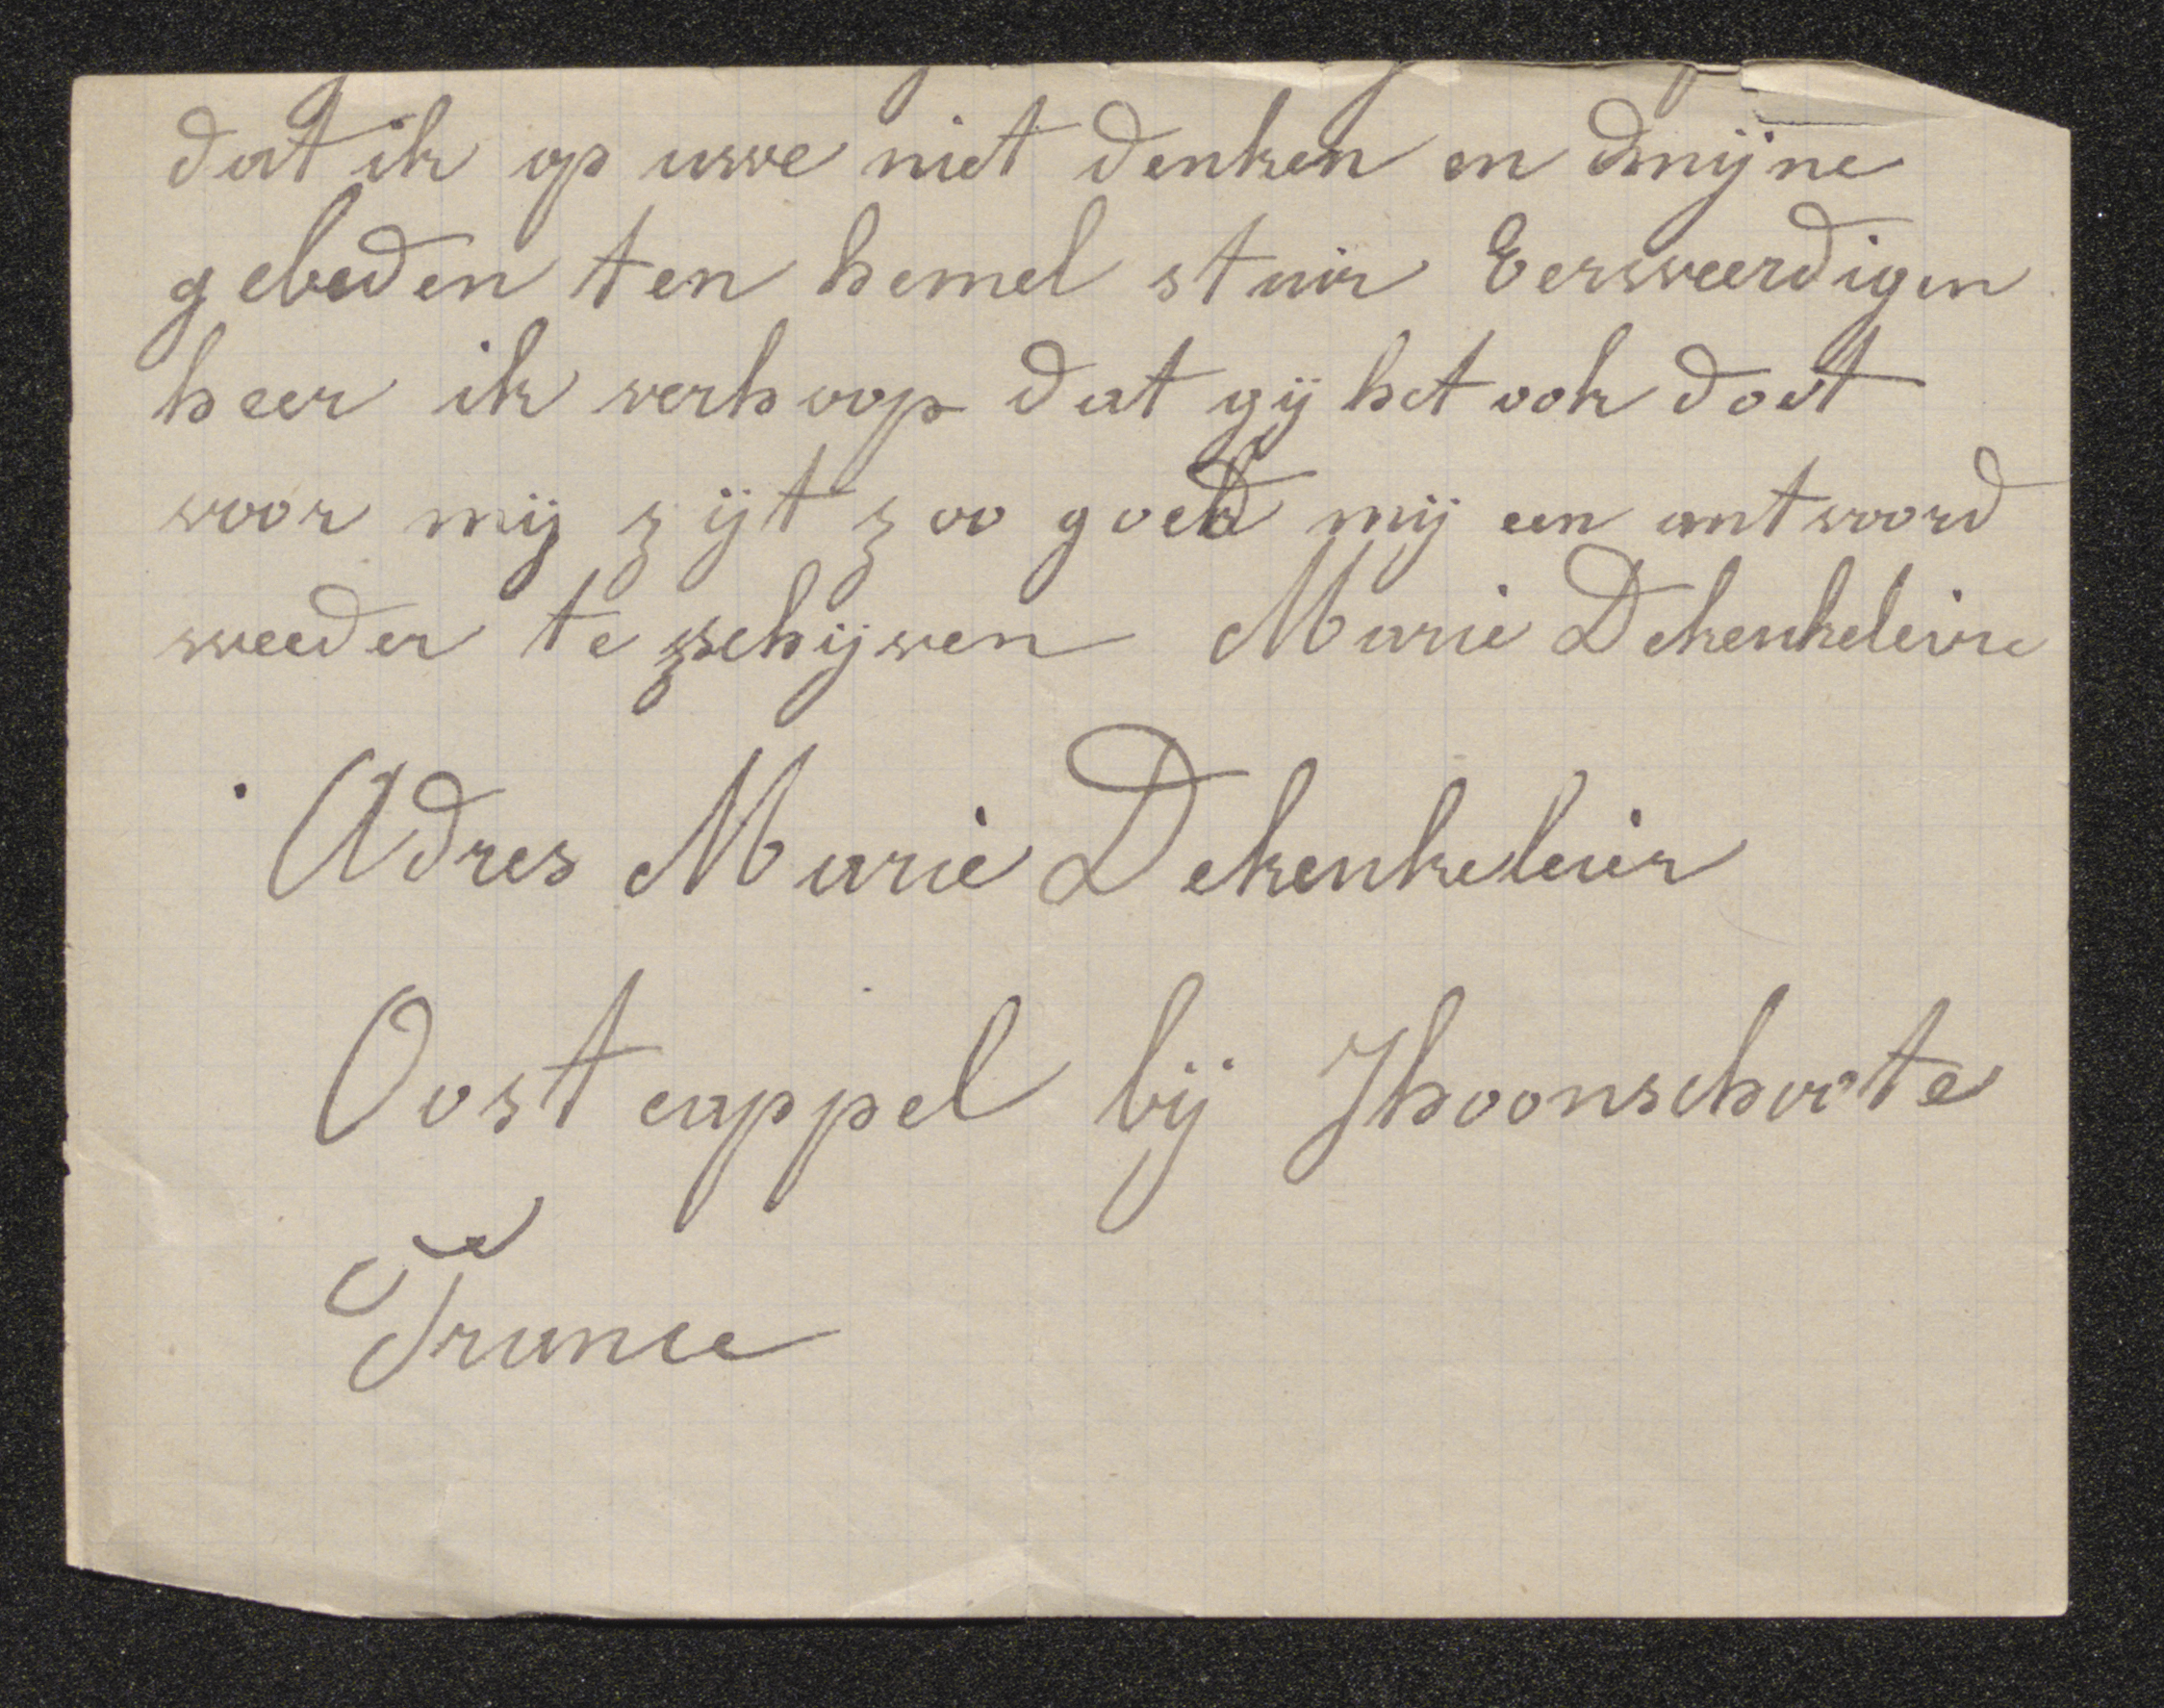 dat ik op uwe niet denken en mijne
gebeden ten hemel stuir Eerweerdigen
heer ik verhoop dat gij het ook doet
voor mij zijt zoo goed mij een antwoord
weeder te schijven Marie Dekenkeleire
Adres Marie Dekenkeleir
Oostcappel bij Jhoonschoote
France